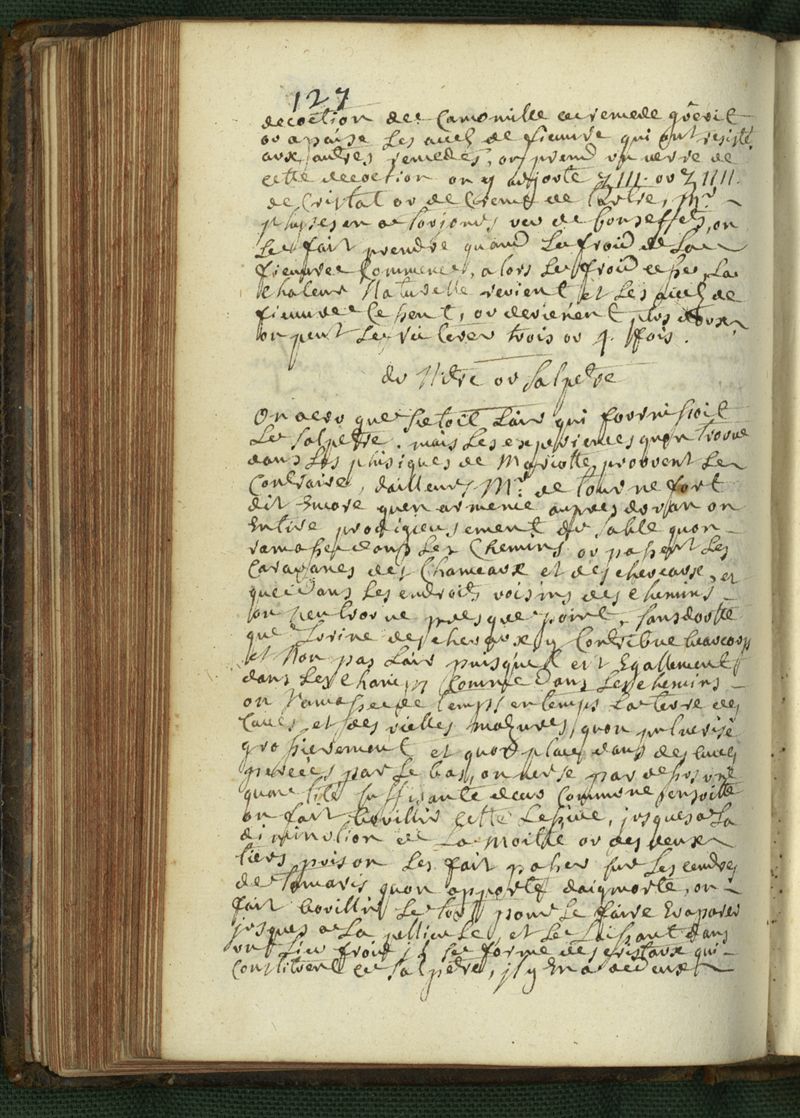 127
decoction de Camomille ce remede guerit
ou apaise les accès de fieuvre qui ont resisté
aux autres remedes, on prend un verre de
cette decoction on y adjoute ʒ III. ou ʒ IIII.
de Cristal ou de Creme de tartre, Mr
a toujours veu de bons effets, on
le fait prendre quand le froid de la
fieuvre commence, alors le froid cesse, la
chaleur Naturelle revient, et les accès de
fieuvre cessent, ou devienent plus doux
on peut le reiterer trois ou 4. fois.
du Nitre ou salpetre
On a creu que s'etoit l'air qui fournissoit
le salpetre. mais les experiences quon trouve
dans les phisiques de Mariotte prouvent le
Contraire, dailleurs Mr. de tournefort
dit encore quen armenie aupres on
en tire prodigieusement du sable quon
ramasse dans les Chemins ou passent les
Caravanes des Chameaux et des chevaux, et
que dans les endroits voisins des chemins
on nen trouve presque point, sans doutte
que l'urine des chevaux y Contribue beaucoup
et Non pas l'air puisquil est Egallement
dans les champs comme dans les chemins
on ramasse de temps en temps la terre des
caves et des vielles mazures, quon pulverise
grossierement et quon place dans des
percées par le bas, on verse par dessus une
quantité suffisante deau commune ensuitte
on fait bouillir cette Lessive, jusques a la
diminution de la moitié ou des deux
tiers, puis on les fait passer sur les cendres
de tamaris quon apporte daigmorte, on
fait bouillir le tout pour le faire Evaporer
jusques a la pellicule, et le laissant dans
un lieu froid, il se forme des cristaux qui
Constituent le salpetre, il y en a de deux